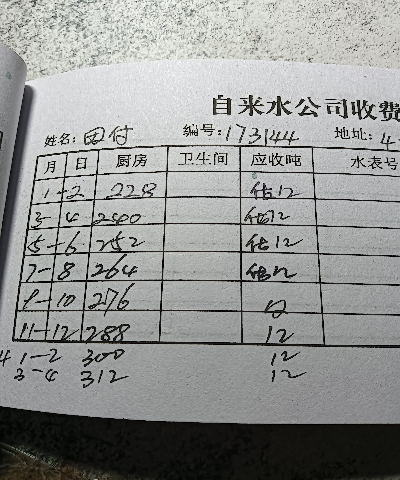 自来水公司收费
姓名: 田付 编号: 173144 地址: 4-
月 日 厨房 卫生间 应收吨 水表号
1-2 228 估12
3-4 2500 估12
5-6 252 估12
7-8 264 估12
9-10 276 12
11-12 288 12
4 1-2 300 12
3-4 312 12